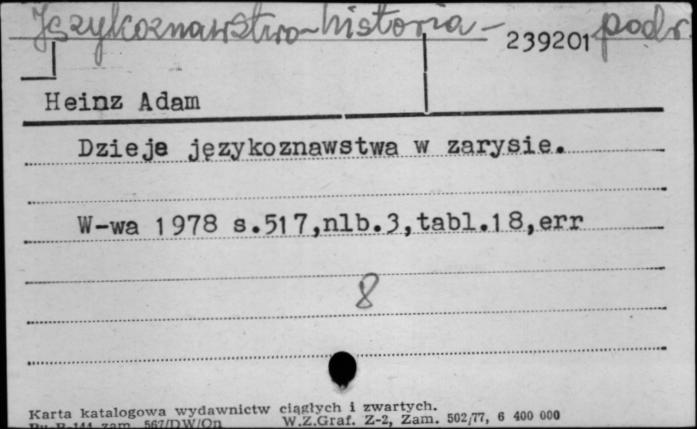 Językoznawstwo - historia - podr.
239201
Heinz Adam
Dzieje językoznawstwa w zarysie.
W-wa 1978 s.517,nlb.3,tabl.18,err
8
Karta katalogowa wydawnictw ciągłych i zwartych.
Pu-B-144 zam. 567/DW/On W.Z.Graf. Z-2, Zam. 502/77, 6 400 000